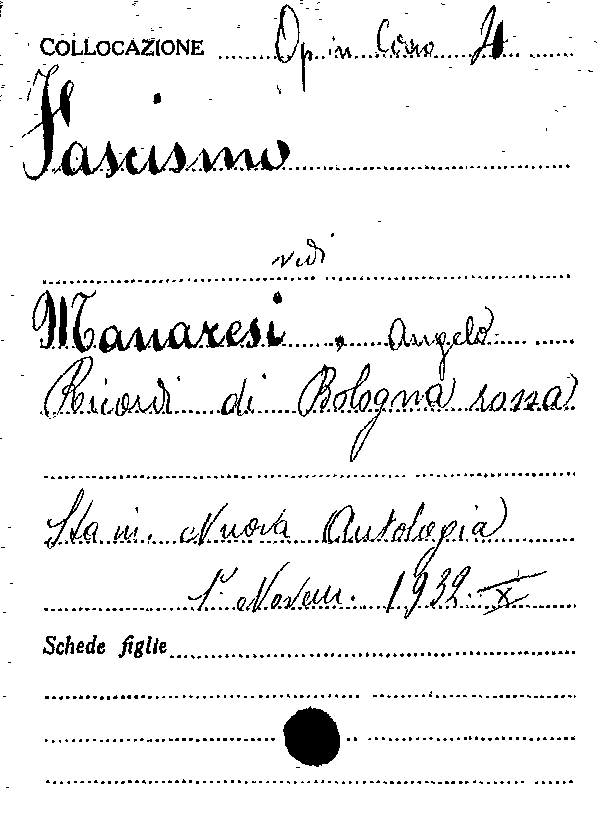 COLLOCAZIONE Op in Corso
Fascismo
vedi
Manaresi, Angelo
Ricordi di Bologna rossa
Sta in. Nuova Antologia
1° Novem. 1932. X
Schede figlie